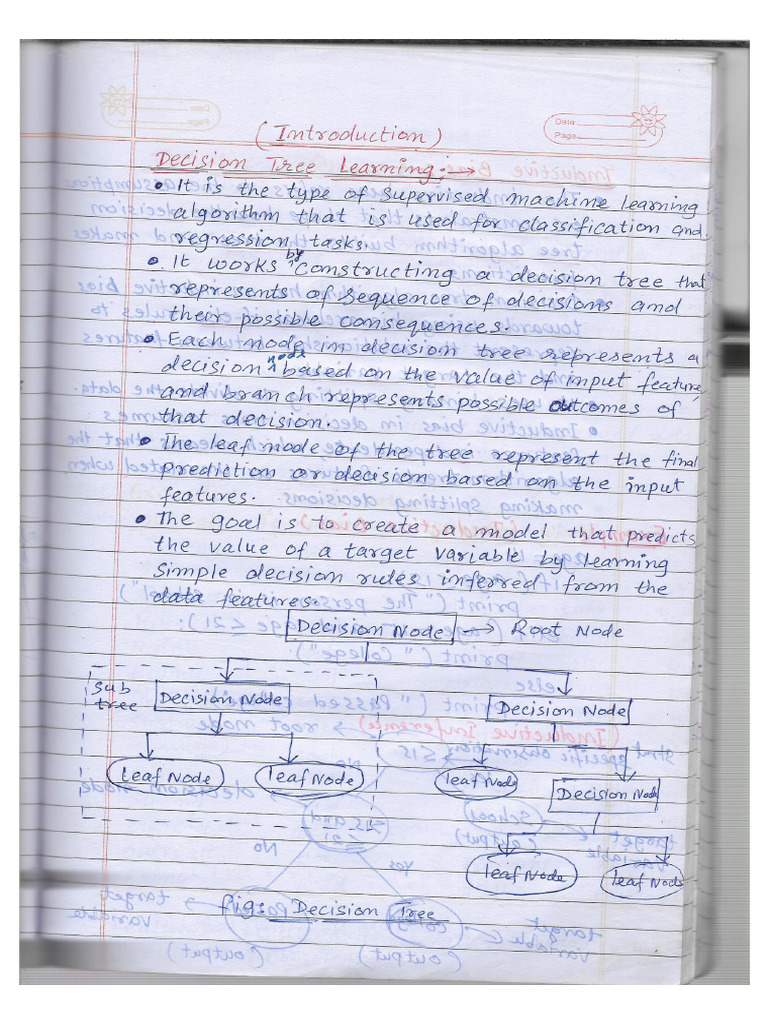 Date
Page
(Introduction)
Decision Tree Learning:→
• It is the type of supervised machine learning
algorithm that is used for classification and
regression tasks.
• It works by constructing a decision tree that
represents of sequence of decisions and
their possible consequences.
• Each node in decision tree represents a
decision node based on the value of input feature,
and branch represents possible outcomes of
that decision.
• The leaf node of the tree represent the final
prediction or decision based on the input
features.
• The goal is to create a model that predicts
the value of a target variable by learning
simple decision rules inferred from the
data features.
Decision Node → Root Node
Sub
tree
Decision Node
Decision Node
Leaf Node
Leaf Node
Leaf Node
Decision Node
Leaf Node
Leaf Node
Fig: Decision Tree